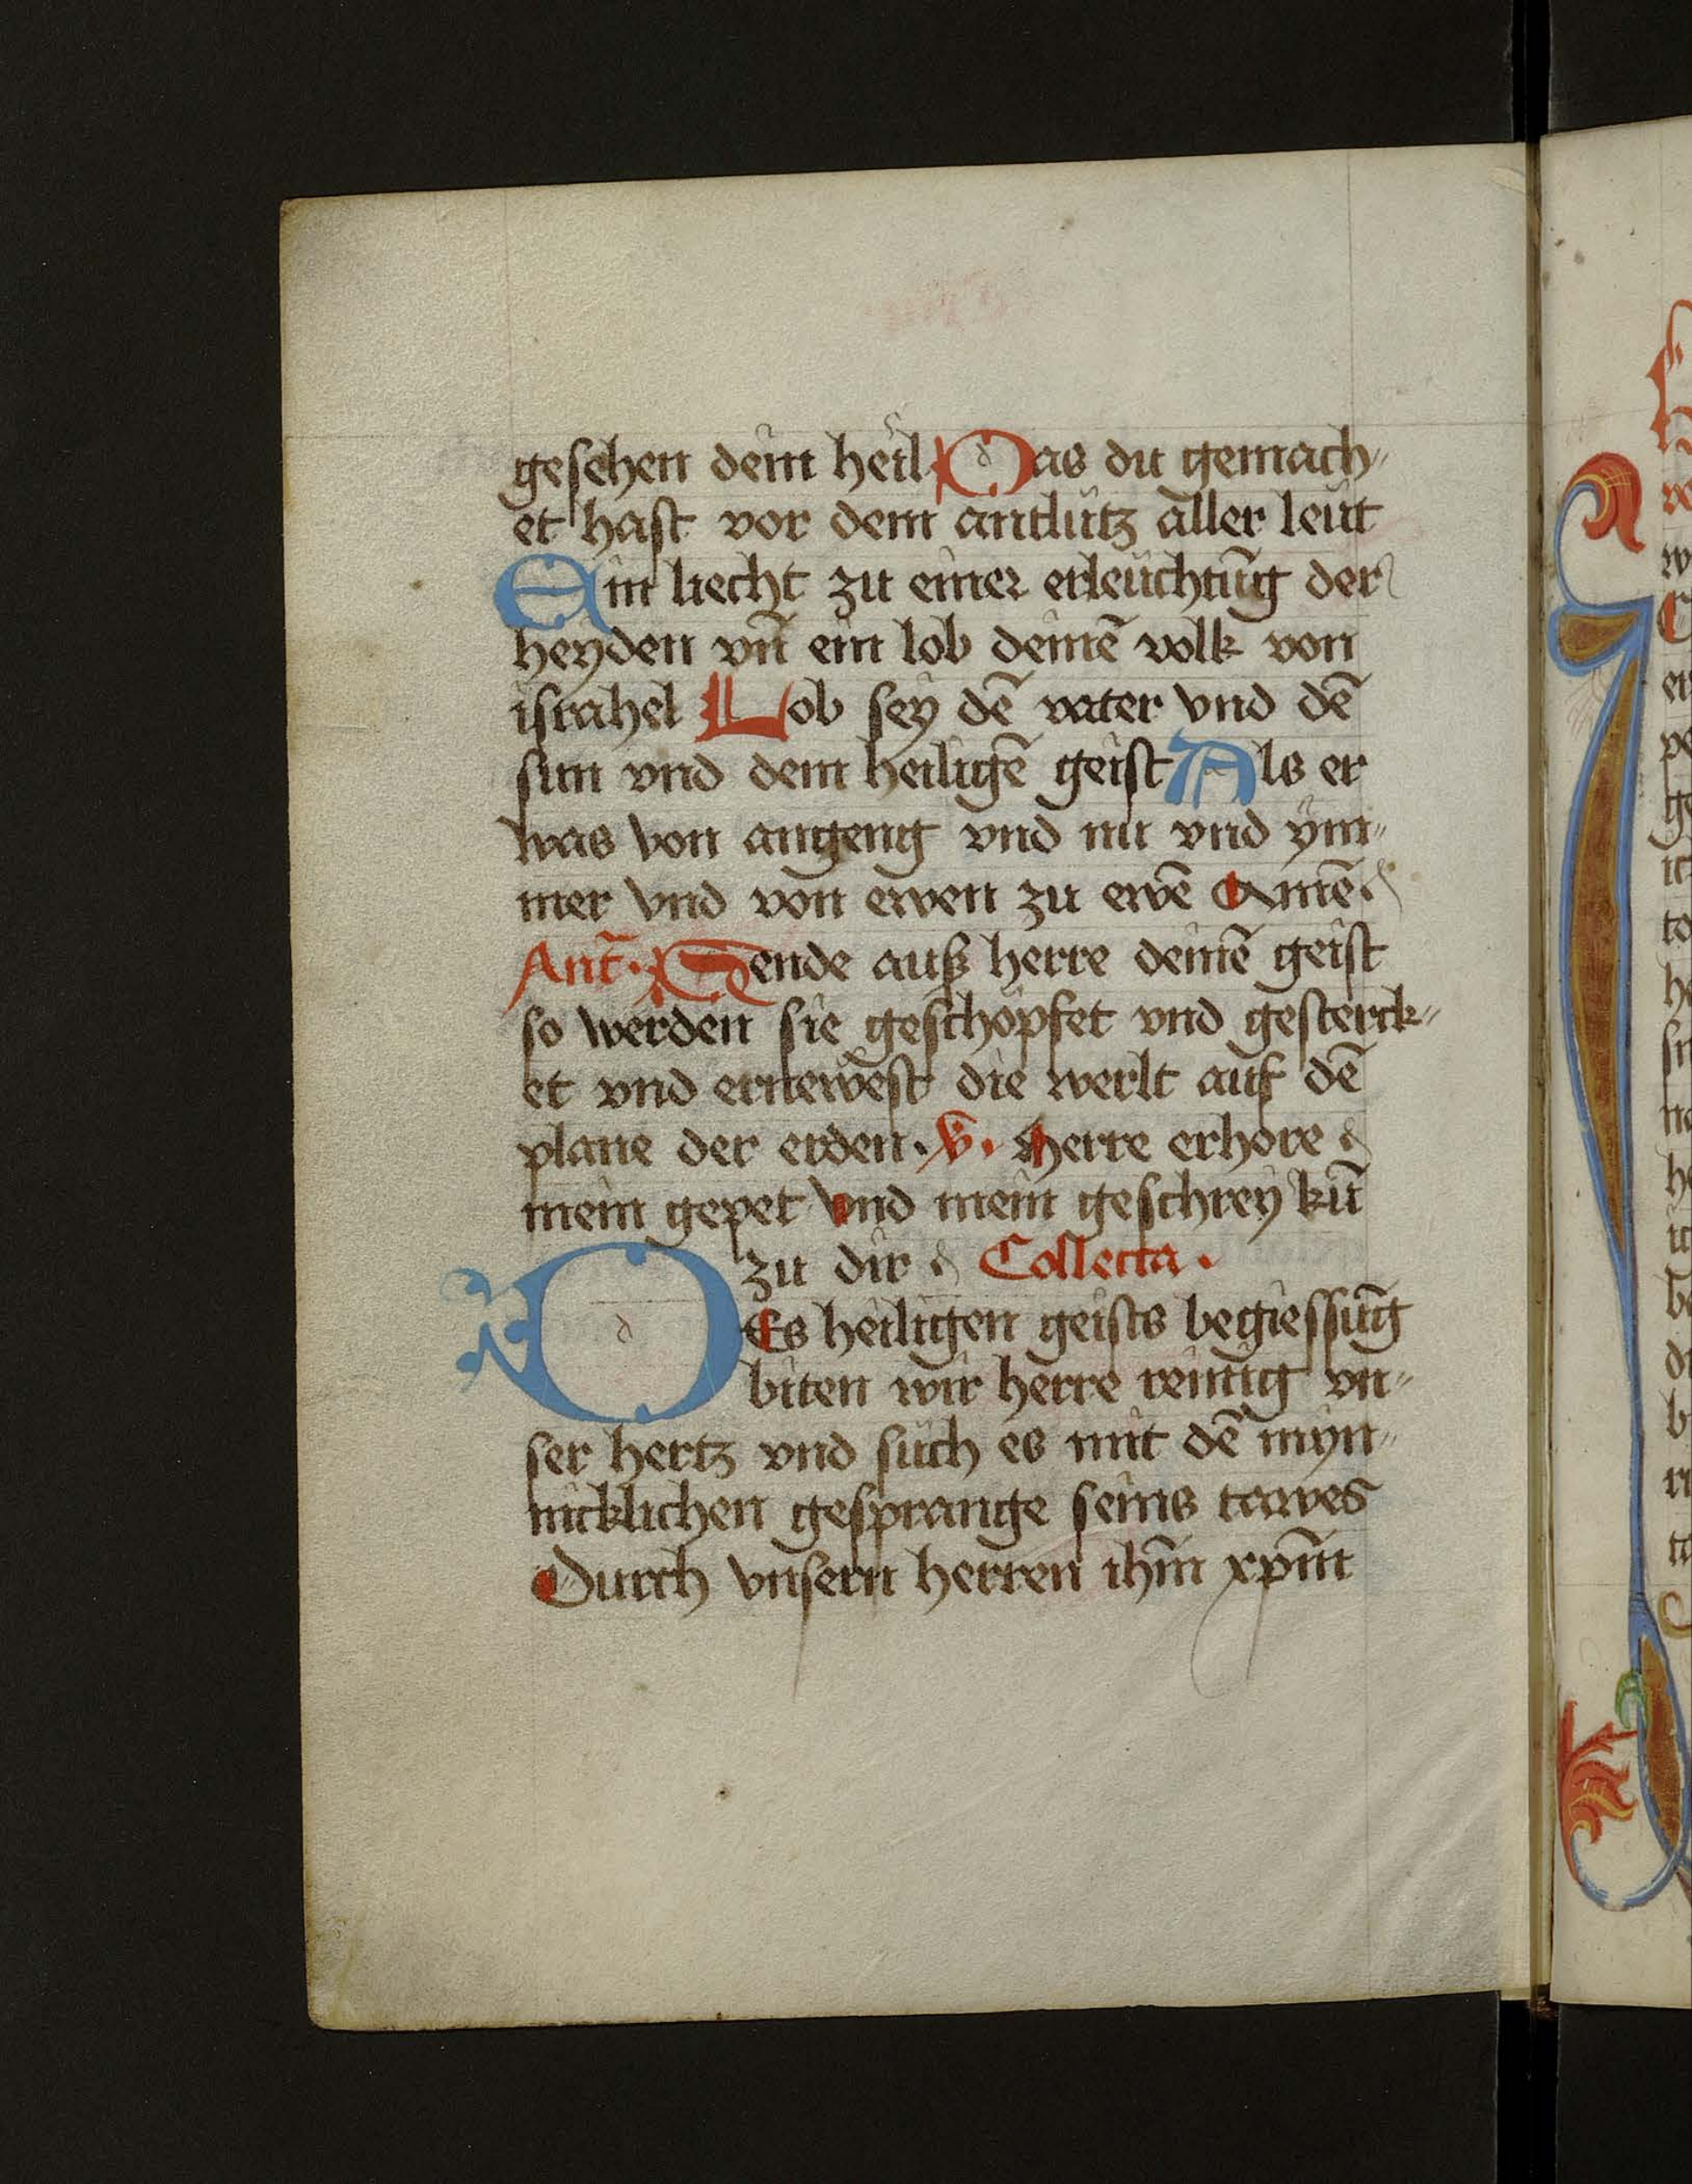 gesehen dein heil Das du gemach„
et hast vor dem antlütz aller leüt
Ein liecht zu einer erleüchtūg der
heyden vn̄ ein lob deinē volk von
israhel Lob sey dē vater vnd dē
sun vnd dem heiligē geist Als er
was von angeng vnd nu vnd ym„
mer vnd von ewen zu ewē Amē·
Ant̄· Sende auß herre deinē geist
so werden sie geschöpfet vnd gesterck„
et vnd ernewest die werlt auf dē
plane der erden· v̄· Herre erhore
mein gepet Vnd mein geschrey kū
zu dir Collecta·
DEs heiligen geists begiessūg
biten wir herre reinig vn„
ser hertz vnd such es mit dē myn„
nicklichen gesprange seins tawes
Durch vnsern herren ihm̄ xpm̄